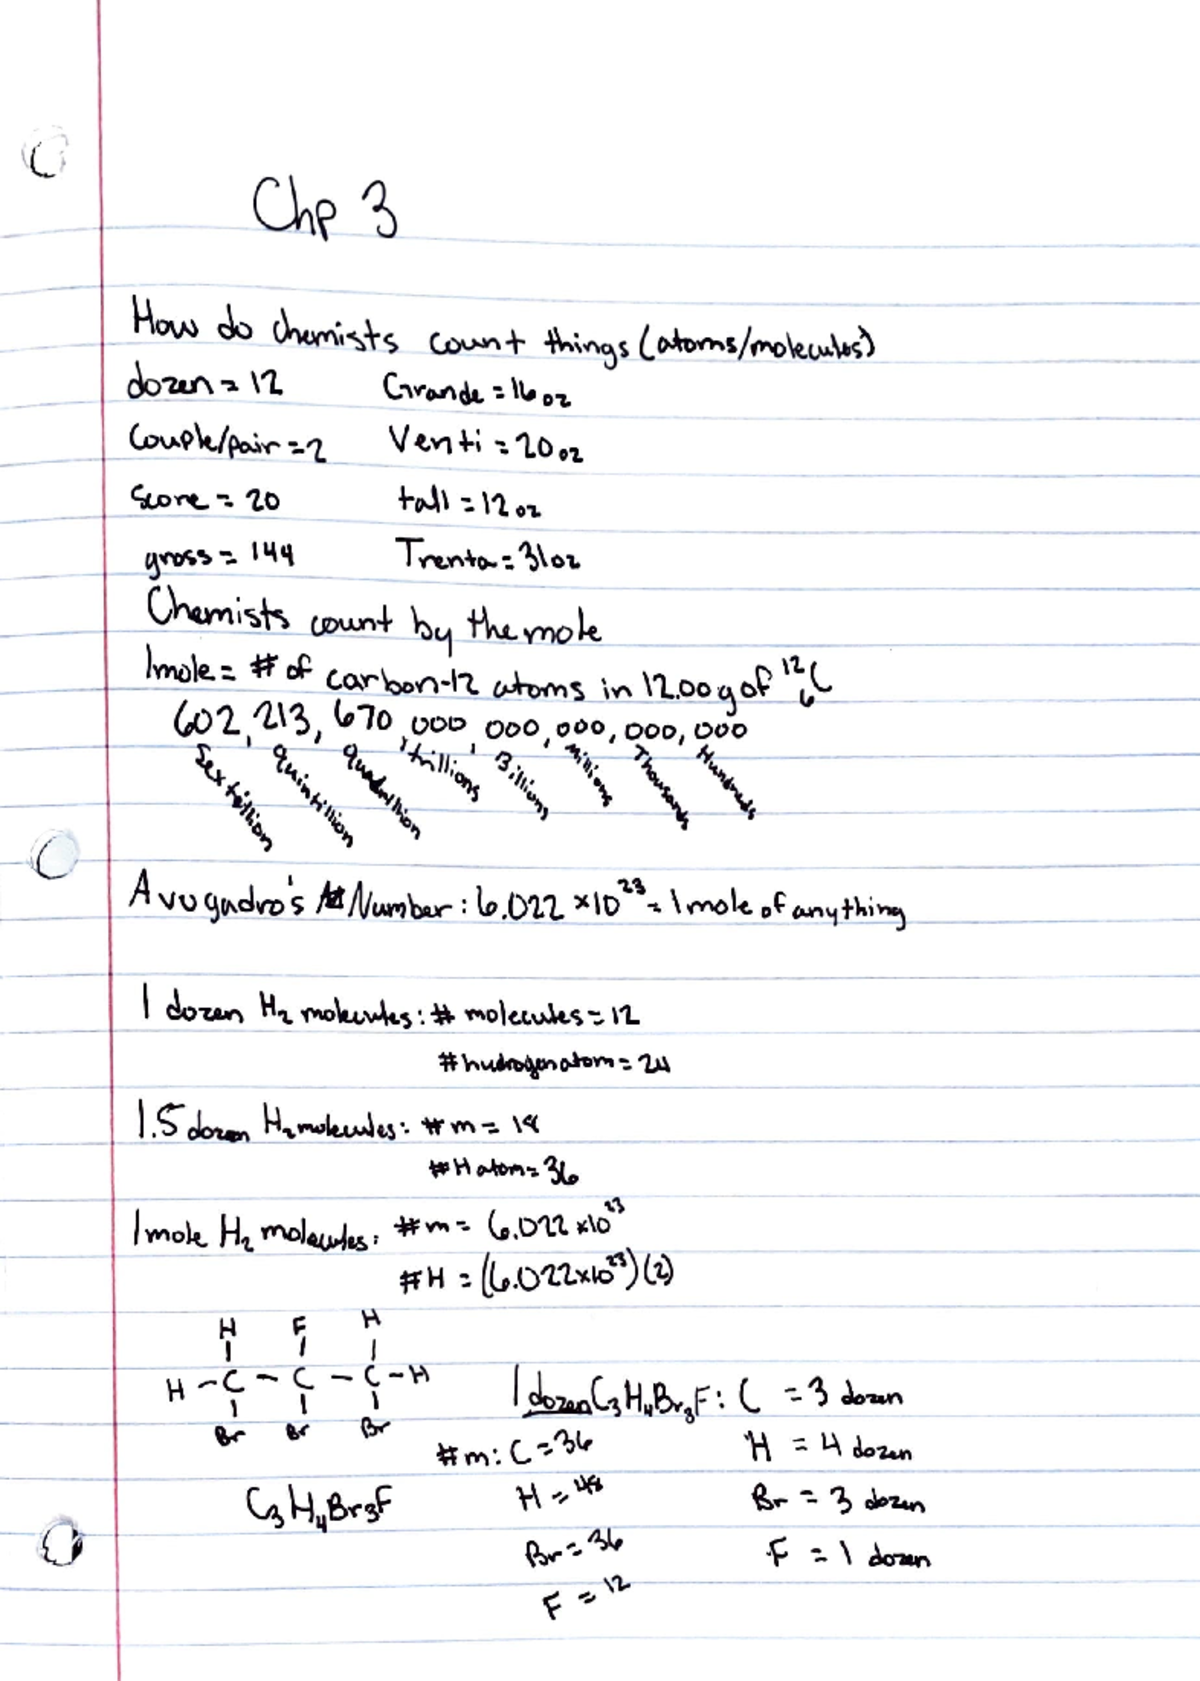 Chp 3
How do chemists count things (atoms/molecules)
dozen = 12 Grande = 16 oz
Couple/pair = 2 Venti = 20 oz
Score = 20 tall = 12 oz
gross = 144 Trenta = 31 oz
Chemists count by the mole
1 mole = # of carbon-12 atoms in 12.00 g of ¹²₆C
602, 213, 670, 000, 000, 000, 000, 000
Sextillion quintillion quadrillion trillions Billions millions Thousands Hundreds
Avogadro's Number: 6.022 × 10²³ = 1 mole of anything
1 dozen H₂ molecules: # molecules = 12
# hydrogen atom = 24
1.5 dozen H₂ molecules: # m = 18
# H atom = 36
1 mole H₂ molecules: # m = 6.022 × 10²³
# H = (6.022 × 10²³)(2)
H F H
H - C - C - C - H
Br Br Br
1 dozen C₃H₄Br₃F: C = 3 dozen
# m: C = 36 H = 4 dozen
C₃H₄Br₃F H = 48 Br = 3 dozen
Br = 36 F = 1 dozen
F = 12